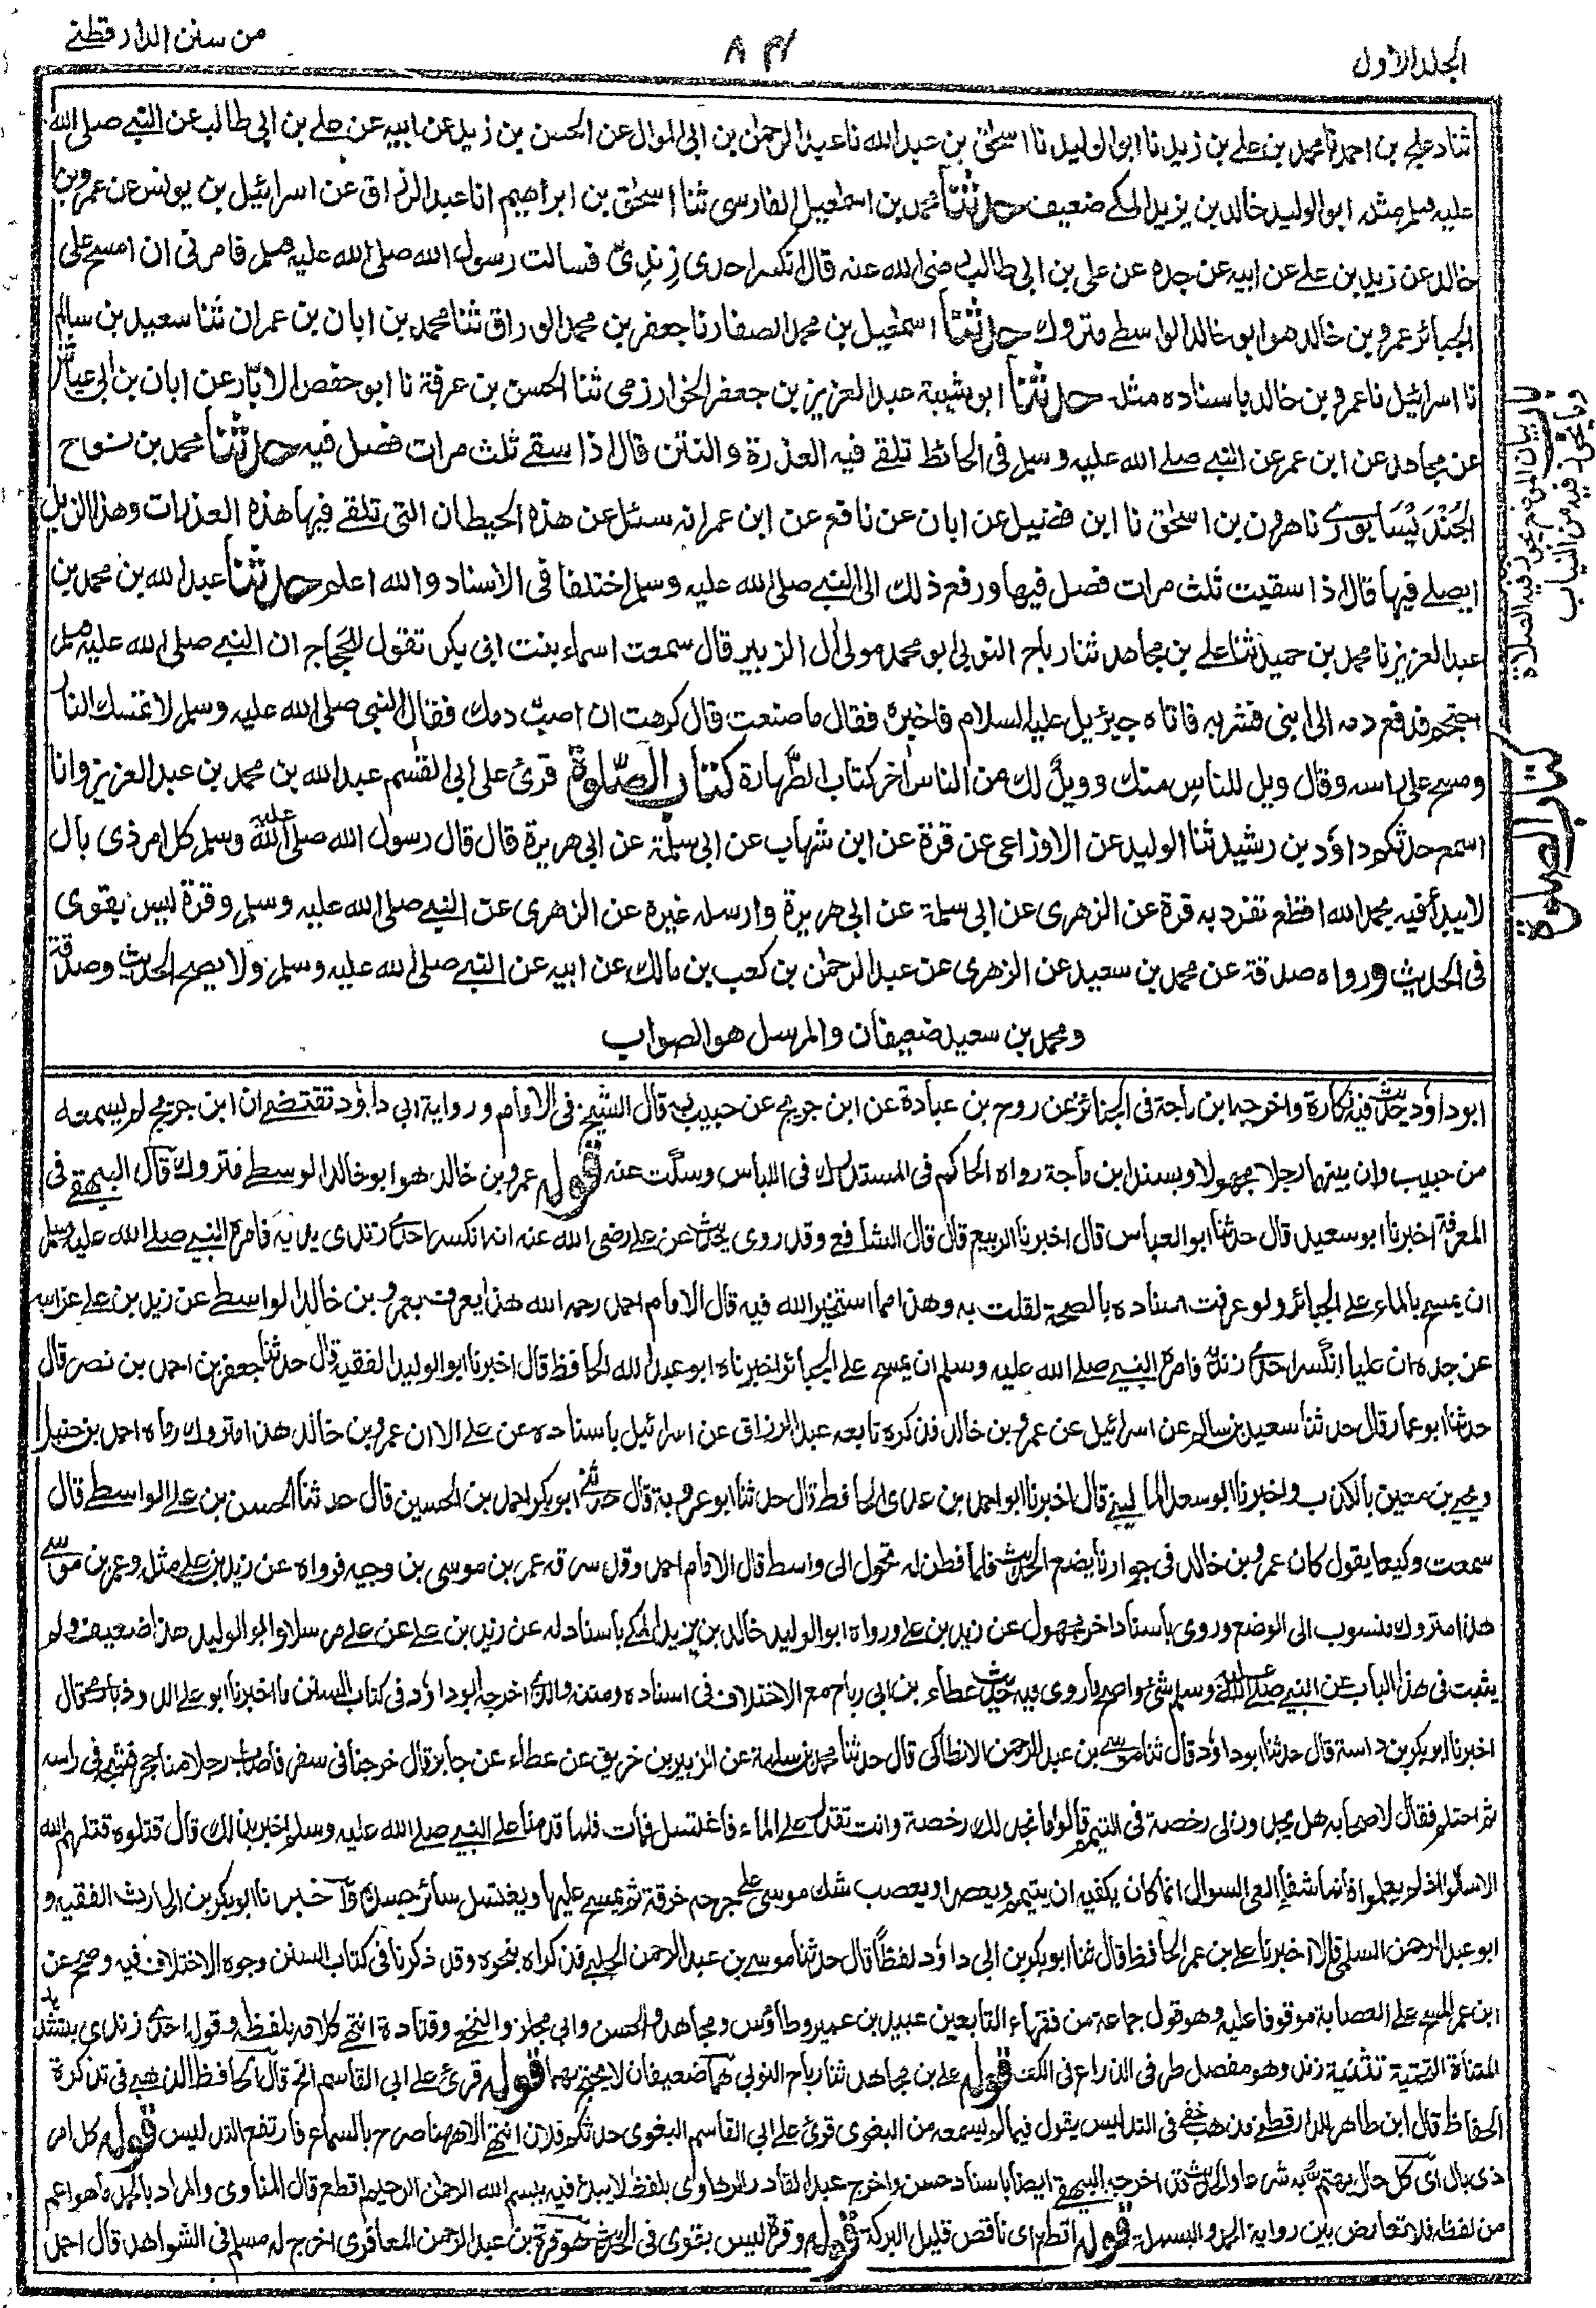 الجلد الاول
٨٣
من سنن الدارقطنے
ثنا دعلج بن احمد نا محمد بن علے بن زيد نا ابو الوليد نا اسحٰق بن عبد الله نا عبد الرحمٰن بن ابى الموال عن الحسن بن زيد عن ابيه عن علے بن ابى طالب عن النبے صلى الله
عليه وسلم مثله ابو الوليد خالد بن يزيد المكے ضعيف حدثنا محمد بن اسمٰعيل الفارسى ثنا اسحٰق بن ابراهيم انا عبد الرزاق عن اسرائيل بن يونس عن عمرو بن
خالد عن زيد بن علے عن ابيه عن جده عن على بن ابى طالب رضى الله عنه قال انكسر احدى زِندِىَّ فسالت رسول الله صلى الله عليه وسلم فامرنى ان امسح على
الجبائر عمرو بن خالد هو ابو خالد الواسطے متروك حدثنا اسمٰعيل بن محمد الصفار نا جعفر بن محمد الوراق ثنا محمد بن ابان بن عمران ثنا سعيد بن سالم
نا اسرائيل نا عمرو بن خالد باسناده مثله حدثنا ابو شيبة عبد العزيز بن جعفر الخوارزمى ثنا الحسن بن عرفة نا ابو حفص الابّار عن ابان بن ابى عياش
عن مجاهد عن ابن عمر عن النبے صلے الله عليه وسلم فى الحائط تلقے فيه العذرة والنتن قال اذا سقے ثلث مرات فصل فيه حدثنا محمد بن نوح
الجُنْدَيْسَابورے نا هرون بن اسحٰق نا ابن فضيل عن ابان عن نافع عن ابن عمر انه سئل عن هذه الحيطان التى تلقے فيها هذه العذرات وهذا الزبل
ايصلے فيها قال اذا سقيت ثلث مرات فصل فيها ورفع ذلك الى النبے صلى الله عليه وسلم اختلفا فى الاسناد والله اعلم حدثنا عبد الله بن محمد بن
عبد العزيز نا محمد بن حميد ثنا علے بن مجاهد ثنا رباح النوبى ابو محمد مولىٰ اٰل الزبير قال سمعت اسماء بنت ابى بكر تقول للحجاج ان النبے صلى الله عليه وسلم
احتجم فدفع دمه الى ابنى فشربه فاتاه جبرئيل عليه السلام فاخبره فقال ما صنعت قال كرهت ان اصبّ دمك فقال النبى صلى الله عليه وسلم لا تمسك النار
ومسح على راسه وقال ويل للناس منك وويلٌ لك من الناس اٰخر كتاب الطَّهارة كتاب الصلوة قرئ على ابى القٰسم عبد الله بن محمد بن عبد العزيز وانا
اسمع حدثكم داؤد بن رشيد ثنا الوليد عن الاوزاعى عن قرة عن ابن شهاب عن ابى سلمة عن ابى هريرة قال قال رسول الله صلى الله عليه وسلم كل امر ذى بال
لا يبدأ فيه بحمد الله اقطع تفرد به قرة عن الزهرى عن ابى سلمة عن ابى هريرة وارسله غيره عن الزهرى عن النبے صلى الله عليه وسلم وقرة ليس بقوى
فى الحديث ورواه صدقة عن محمد بن سعيد عن الزهرى عن عبد الرحمٰن بن كعب بن مالك عن ابيه عن النبے صلى الله عليه وسلم ولا يصح الحديث وصدقة
ومحمد بن سعيد ضعيفان والمرسل هو الصواب
كتاب الصلوة
ابو داؤد حديث فيه نكارة واخرجه ابن ماجة فى الجنائز عن روح بن عبادة عن ابن جريج عن حبيب به قال الشيخ فى الامام ورواية ابى داؤد تقتضے ان ابن جريج لم يسمعه
من حبيب وان بينهما رجلا مجهولا وبسند ابن ماجة رواه الحاكم فى المستدرك فى اللباس وسكت عنه قوله عمرو بن خالد هو ابو خالد الوسطے متروك قال البيهقے فى
المعرفة اخبرنا ابو سعيد قال حدثنا ابو العباس قال اخبرنا الربيع قال قال الشافعے وقد روى حديث عن علے رضى الله عنه انه انكسر احدى زندى يديه فامره النبے صلے الله عليه وسلم
ان يمسح بالماء علے الجبائر ولو عرفت اسناده بالصحة لقلت به وهذا مما استخير الله فيه قال الامام احمد رحمه الله هذا يعرف بعمرو بن خالد الواسطے عن زيد بن علے عن ابيه
عن جده ان عليا انكسر احدى زنديه فامره النبے صلے الله عليه وسلم ان يمسح علے الجبائر اخبرناه ابو عبد الله الحافظ قال اخبرنا ابو الوليد الفقيه قال حدثنا جعفر بن احمد بن نصر قال
حدثنا ابو عمار قال حدثنا سعيد بن سالم عن اسرائيل عن عمرو بن خالد فذكره تابعه عبد الرزاق عن اسرائيل باسناده عن علے الا ان عمرو بن خالد هذا متروك رماه احمد بن حنبل
ويحيے بن معين بالكذب واخبرنا ابو سعد المالينے قال اخبرنا ابو احمد بن عدى الحافظ قال حدثنا ابو عروبة قال حدثنى ابو بكر احمد بن الحسين قال حدثنا الحسن بن علے الواسطے قال
سمعت وكيعا يقول كان عمرو بن خالد فى جوارنا يضع الحديث فلما فطن له تحول الى واسط قال الامام احمد وقد سرقه عمر بن موسى بن وجيه فرواه عن زيد بن علے مثله وعمر بن موسے
هذا متروك منسوب الى الوضع وروى باسناد اخر مجهول عن زيد بن علے ورواه ابو الوليد خالد بن يزيد المكے باسناد له عن زيد بن علے عن علے مرسلا وابو الوليد هذا ضعيف ولم
يثبت فى هذا الباب عن النبے صلى الله عليه وسلم شئ واصح ما روى فيه حديث عطاء بن ابى رباح مع الاختلاف فى اسناده ومتنه والذى اخرجه ابو داؤد فى كتاب السنن ما اخبرنا ابو على الروذبارى قال
اخبرنا ابو بكر بن داسة قال حدثنا ابو داؤد قال ثنا موسے بن عبد الرحمن الانطاكى قال حدثنا محمد بن سلمة عن الزبير بن خريق عن عطاء عن جابر قال خرجنا فى سفر فاصاب رجلا منا حجر فشجه فى راسه
ثم احتلم فقال لاصحابه هل تجدون لى رخصة فى التيمم قالوا ما نجد لك رخصة وانت تقدر على الماء فاغتسل فمات فلما قدمنا على النبے صلے الله عليه وسلم اخبر بذلك قال قتلوه قتلهم الله
الا سالوا اذ لم يعلموا فانما شفاء العى السوال انما كان يكفيه ان يتيمم ويعصر او يعصب شك موسى على جرحه خرقة ثم يمسح عليها ويغتسل سائر جسده قال اخبرنا ابو بكر بن الحارث الفقيه و
ابو عبد الرحمن السلمى قالا اخبرنا علے بن عمر الحافظ قال ثنا ابو بكر بن ابى داؤد لفظاً قال حدثنا موسے بن عبد الرحمن الحلبے فذكراه بنحوه وقد ذكرنا فى كتاب السنن وجوه الاختلاف فيه وصح عن
ابن عمر المسح على العصابة موقوفا عليه وهو قول جماعة من فقهاء التابعين عبيد بن عمير وطاؤس ومجاهد والحسن وابى مجلز والنخعے وقتادة انتهے كلامه بلفظه وقوله احدى زندى بتشديد
المثناة التحتية تثنية زند وهو مفصل طرف الذراع فى الكف قوله علے بن مجاهد ثنا رباح النوبى هما ضعيفان لا يحتج بهما قوله قرئ على ابى القاسم الخ قال الحافظ الذهبے فى تذكرة
الحفاظ قال ابن طاهر للدارقطنے مذهب خفے فى التدليس يقول فيما لم يسمعه من البغوى قرئ على ابى القاسم البغوى حدثكم فلان انتهے الا ههنا صرح بالسماع فارتفع التدليس قوله كل امر
ذى بال اى كل حال يهتم به شرعا والحديث اخرجه البيهقے ايضا باسناد حسن واخرج عبد القادر الرهاوى بلفظ لا يبدء فيه ببسم الله الرحمٰن الرحيم اقطع قال المناوى والمراد بالحمد ما هو اعم
من لفظه فلا تعارض بين رواية الحمد والبسملة قوله اقطع اى ناقص قليل البركة قوله وقرة ليس بقوى فى الحديث هو قرة بن عبد الرحمن المعافرى اخرج له مسلم فى الشواهد قال احمد